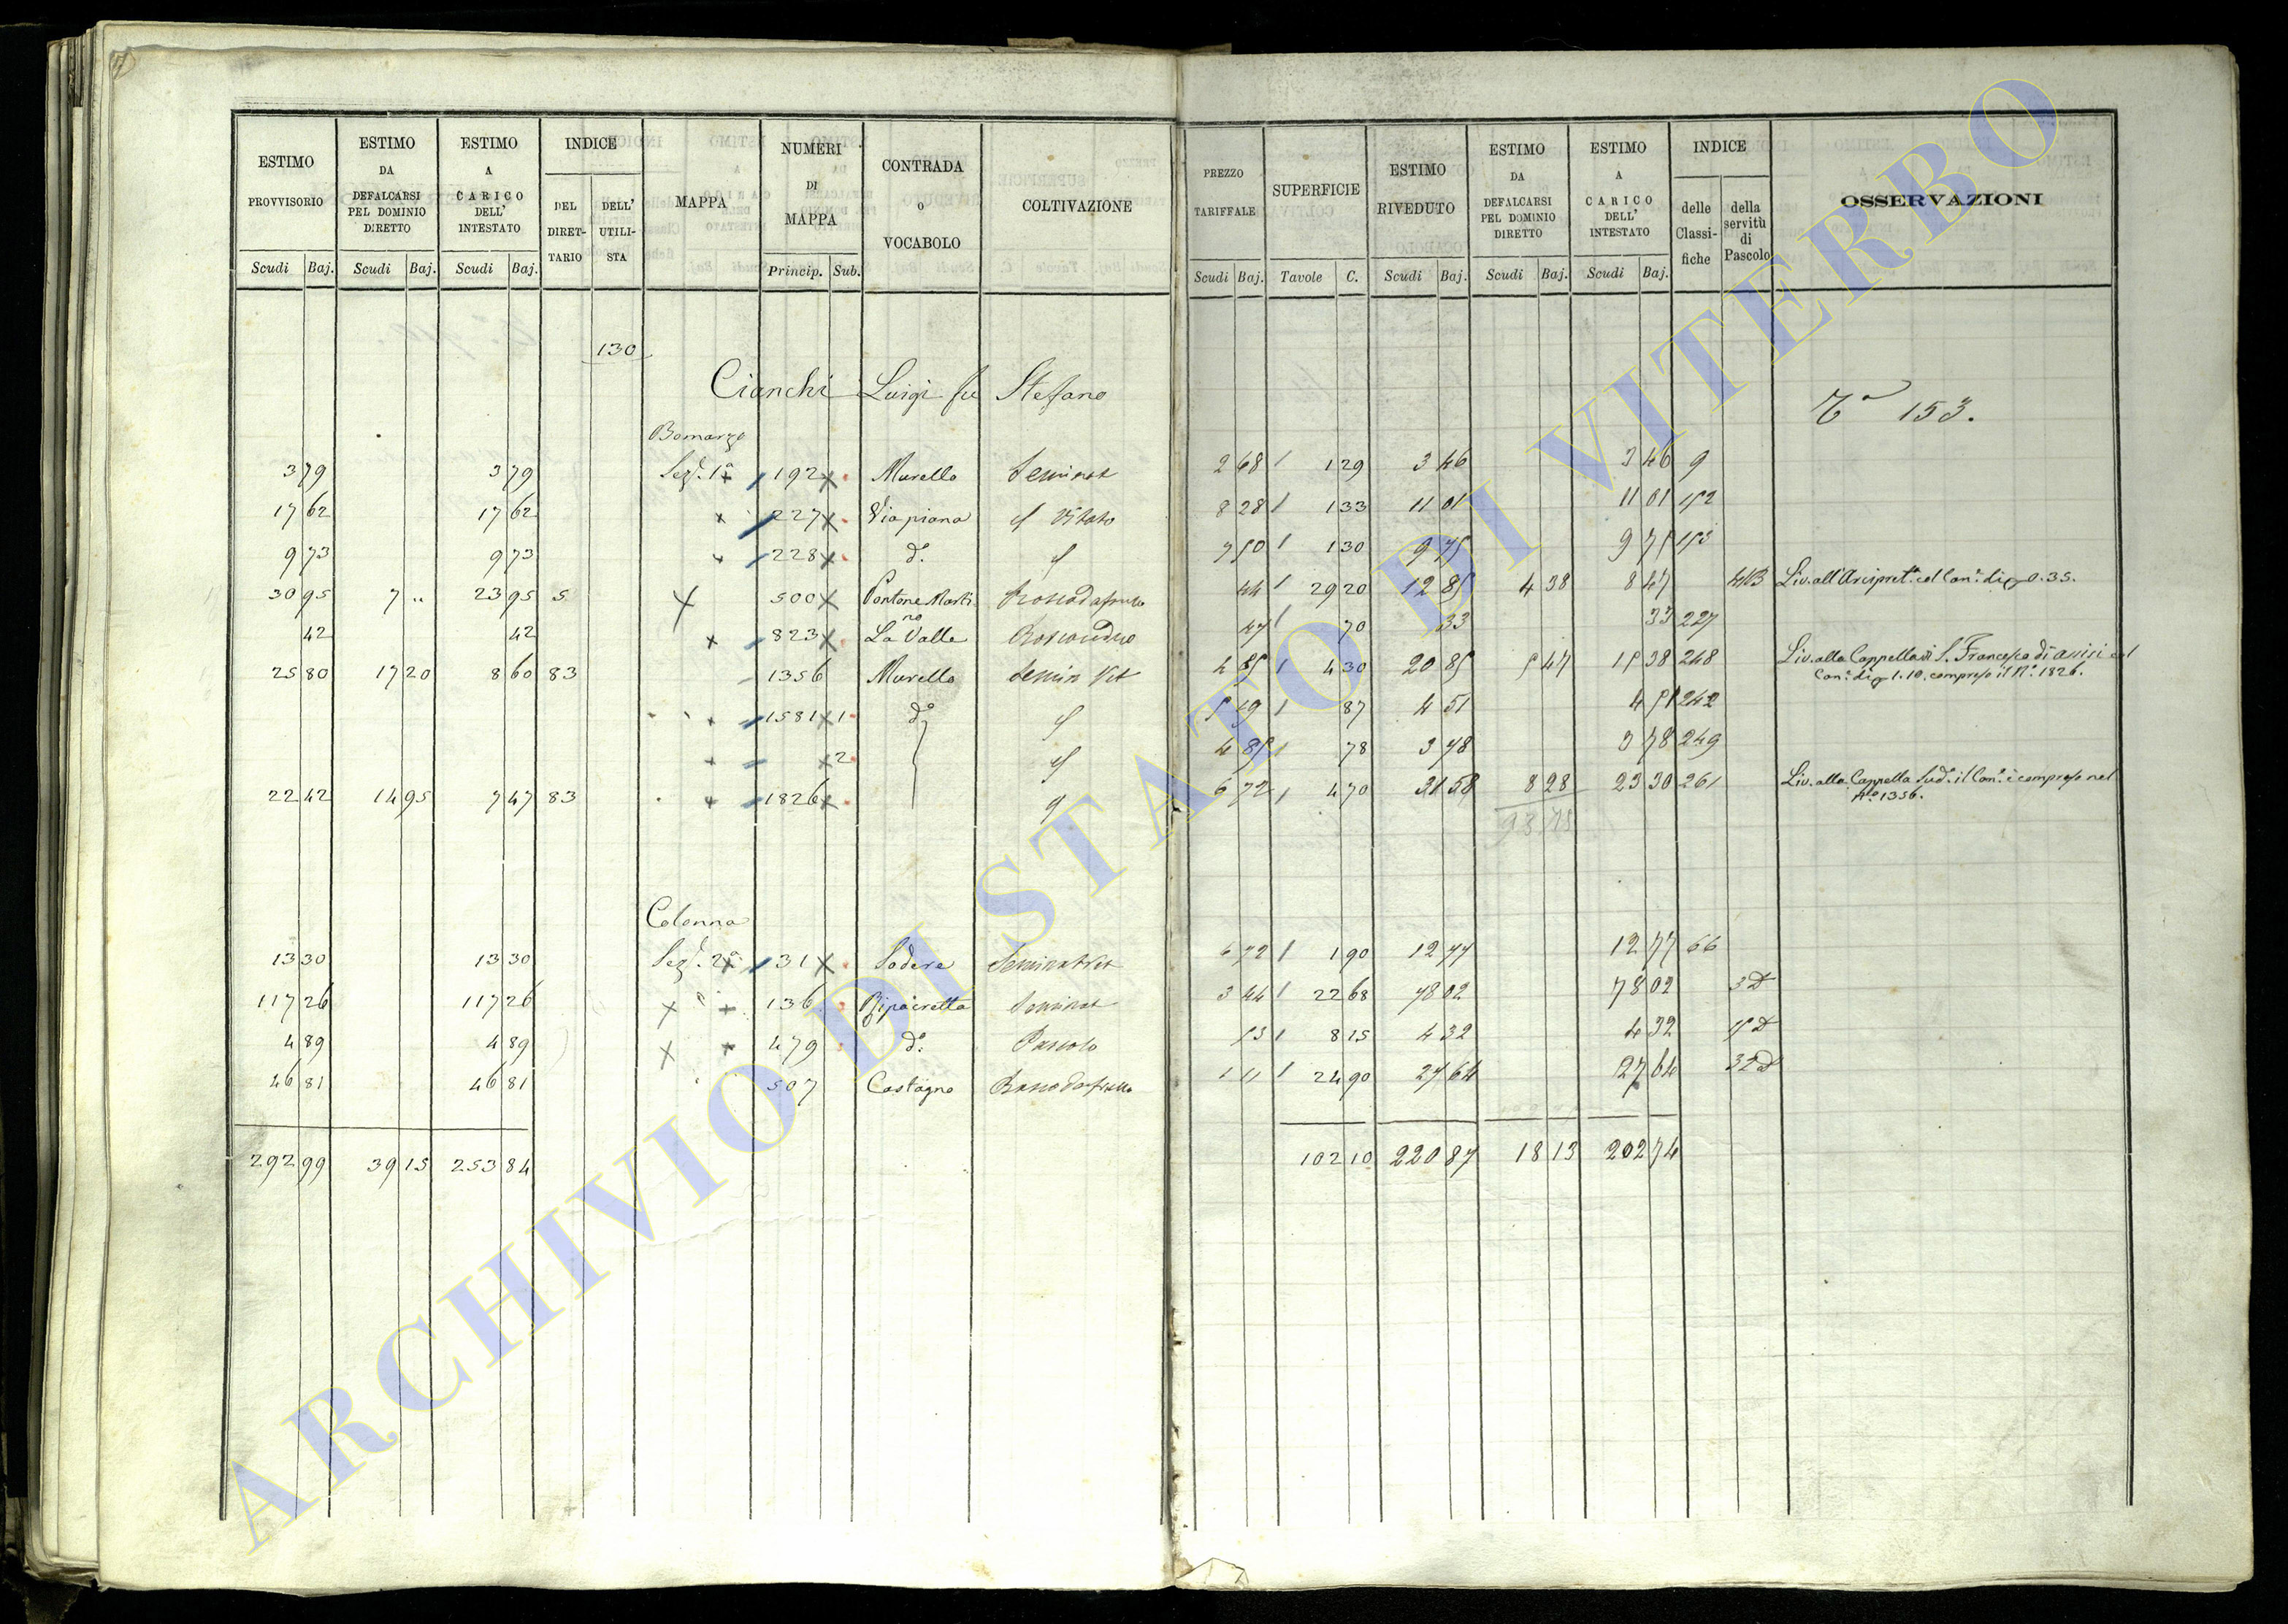 ESTIMO PROVVISORIO Scudi Baj.
ESTIMO DA DEFALCARSI PEL DOMINIO DIRETTO Scudi Baj.
ESTIMO A CARICO DELL' INTESTATO Scudi Baj.
INDICE DEL DIRET-TARIO DELL' UTILI-STA
MAPPA
NUMERI DI MAPPA Princip. Sub.
CONTRADA O VOCABOLO
COLTIVAZIONE
PREZZO TARIFFALE Scudi Baj.
SUPERFICIE Tavole C.
ESTIMO RIVEDUTO Scudi Baj.
ESTIMO DA DEFALCARSI PEL DOMINIO DIRETTO Scudi Baj.
ESTIMO A CARICO DELL' INTESTATO Scudi Baj.
INDICE delle Classi-fiche della servitù di Pascolo
OSSERVAZIONI
130
Cianchi Luigi fu Stefano
153.
Bomarzo
3 79 3 79 Sez. 1ª 192 Murello Seminat 2 68 1 29 3 46 3 46 9
17 62 17 62 227 Via piana Vitato 8 28 1 33 11 01 11 01 152
9 73 9 73 228 dº 7 50 1 30 9 75 9 75 153
30 95 7 " 23 95 5 500 Pontone Martino 44 29 20 12 85 4 38 8 47 Liv. all' Arcipret.ª col Can.e di 0.35.
42 42 823 La Valle 47 70 33 33 227
25 80 17 20 8 60 83 1356 Murello Semin Vit 4 85 4 30 20 85 5 47 15 38 248 Liv. alla Cappella di S. Francesco di Assisi col
Can.e di 1.10. compreso il Nº 1826.
1581 1 dº 5 19 87 4 51 4 51 242
2 4 85 78 3 78 3 78 249
22 42 14 95 7 47 83 1826 6 72 4 70 31 58 8 28 23 30 261 Liv. alla Cappella Sudª il Can.e è compreso nel
Nº 1356.
Colonna
13 30 13 30 Sez. 2ª 31 Sodere Seminat Vit 6 72 1 90 12 77 12 77 66
117 26 117 26 136 Seminat 3 44 22 68 78 02 78 02 3D
4 89 4 89 479 dº Pascolo 53 8 15 4 32 4 32
46 81 46 81 507 Castagno Bosco da frutto 1 11 24 90 27 64 27 64
292 99 39 15 253 84 102 10 220 87 18 13 202 74
ARCHIVIO DI STATO DI VITERBO